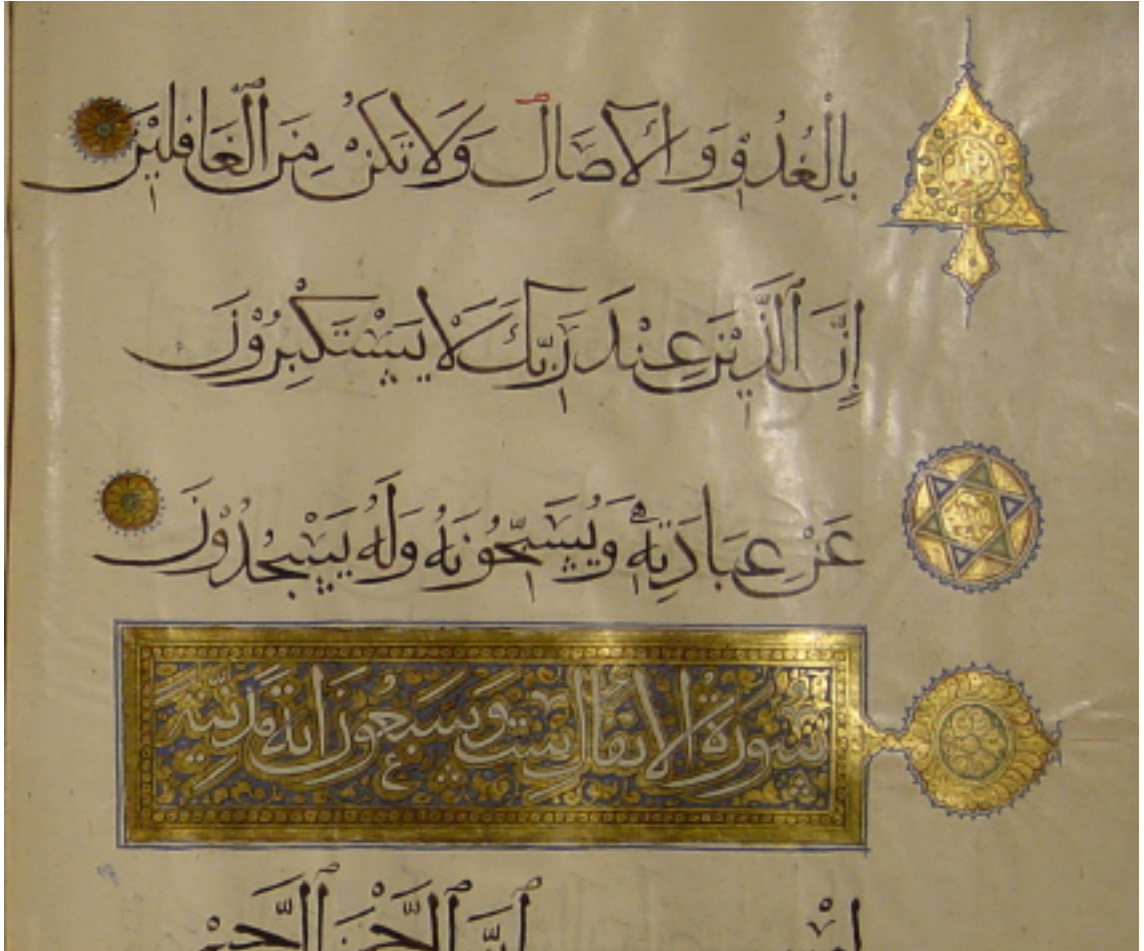 بِالْغُدُوِّ وَالْآصَالِ وَلَا تَكُنْ مِنَ ٱلْغَافِلِيْنَ
إِنَّ ٱلَّذِيْنَ عِنْدَ رَبِّكَ لَا يَسْتَكْبِرُوْنَ
عَنْ عِبَادَتِهِ وَيُسَبِّحُوْنَهُ وَلَهُ يَسْجُدُوْنَ
سُوْرَةُ الْأَنْفَالِ سِتٌّ وَسَبْعُوْنَ اٰيَةً مَدَنِيَّةٌ
بِسْمِ ٱللَّهِ ٱلرَّحْمٰنِ ٱلرَّحِيْمِ